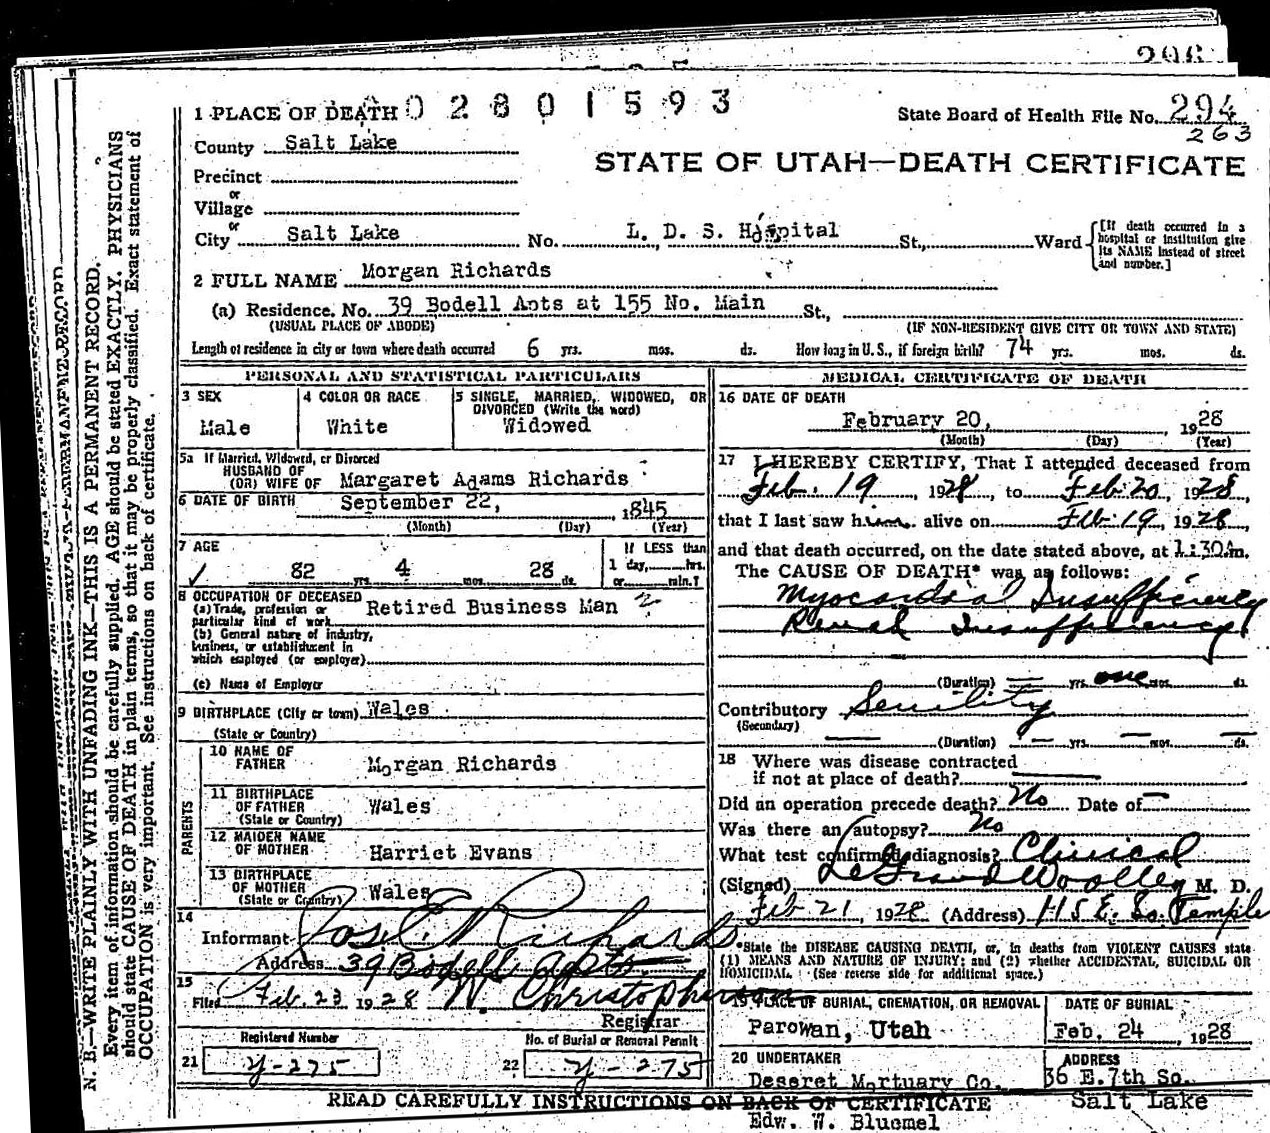 296
1 PLACE OF DEATH 02801593
State Board of Health File No. 294
263
County Salt Lake
STATE OF UTAH—DEATH CERTIFICATE
Precinct
or
Village
or
City Salt Lake No. L. D. S. Hospital St., Ward
[If death occurred in a hospital or institution give its NAME instead of street and number.]
2 FULL NAME Morgan Richards
(a) Residence. No. 39 Bodell Apts at 155 No. Main St.,
(USUAL PLACE OF ABODE) (IF NON-RESIDENT GIVE CITY OR TOWN AND STATE)
Length of residence in city or town where death occurred 6 yrs. mos. ds. How long in U. S., if foreign birth? 74 yrs. mos. ds.
PERSONAL AND STATISTICAL PARTICULARS
3 SEX
Male
4 COLOR OR RACE
White
5 SINGLE, MARRIED, WIDOWED, OR
DIVORCED (Write the word)
Widowed
5a If Married, Widowed, or Divorced
HUSBAND OF
(OR) WIFE OF Margaret Adams Richards
6 DATE OF BIRTH September 22, 1845
(Month) (Day) (Year)
7 AGE
82 yrs. 4 mos. 28 ds.
If LESS than
1 day, hrs.
or min.?
8 OCCUPATION OF DECEASED
(a) Trade, profession or
particular kind of work Retired Business Man
(b) General nature of industry,
business, or establishment in
which employed (or employer)
(c) Name of Employer
9 BIRTHPLACE (City or town) Wales
(State or Country)
PARENTS
10 NAME OF
FATHER Morgan Richards
11 BIRTHPLACE
OF FATHER Wales
(State or Country)
12 MAIDEN NAME
OF MOTHER Harriet Evans
13 BIRTHPLACE
OF MOTHER Wales
(State or Country)
14
Informant Jos E Richards
Address 39 Bodell Apts.
15
Filed Feb. 23 1928 W. Christopherson
Registrar
Registered Number
21 Y-275
No. of Burial or Removal Permit
22 Y-275
MEDICAL CERTIFICATE OF DEATH
16 DATE OF DEATH
February 20, 1928
(Month) (Day) (Year)
17 I HEREBY CERTIFY, That I attended deceased from
Feb. 19, 1928, to Feb 20, 1928,
that I last saw him alive on Feb 19, 1928,
and that death occurred, on the date stated above, at 1:30 m.
The CAUSE OF DEATH* was as follows:
Myocardial Insufficiency
Renal Insufficiency
(Duration) — yrs. one mos. ds.
Contributory Senility
(Secondary)
(Duration) — yrs. — mos. — ds.
18 Where was disease contracted
if not at place of death?
Did an operation precede death? No Date of —
Was there an autopsy? No
What test confirmed diagnosis? Clinical
(Signed) LeGrand Woolley M. D.
Feb 21, 1928 (Address) 115 E. So. Temple
*State the DISEASE CAUSING DEATH, or, in deaths from VIOLENT CAUSES state
(1) MEANS AND NATURE OF INJURY; and (2) whether ACCIDENTAL, SUICIDAL OR
HOMICIDAL. (See reverse side for additional space.)
19 PLACE OF BURIAL, CREMATION, OR REMOVAL
Parowan, Utah
DATE OF BURIAL
Feb. 24, 1928
20 UNDERTAKER
Deseret Mortuary Co.
Edw. W. Bluemel
ADDRESS
36 E. 7th So.
Salt Lake
READ CAREFULLY INSTRUCTIONS ON BACK OF CERTIFICATE
N. B.—WRITE PLAINLY WITH UNFADING INK—THIS IS A PERMANENT RECORD.
Every item of information should be carefully supplied. AGE should be stated EXACTLY. PHYSICIANS
should state CAUSE OF DEATH in plain terms, so that it may be properly classified. Exact statement of
OCCUPATION is very important. See instructions on back of certificate.